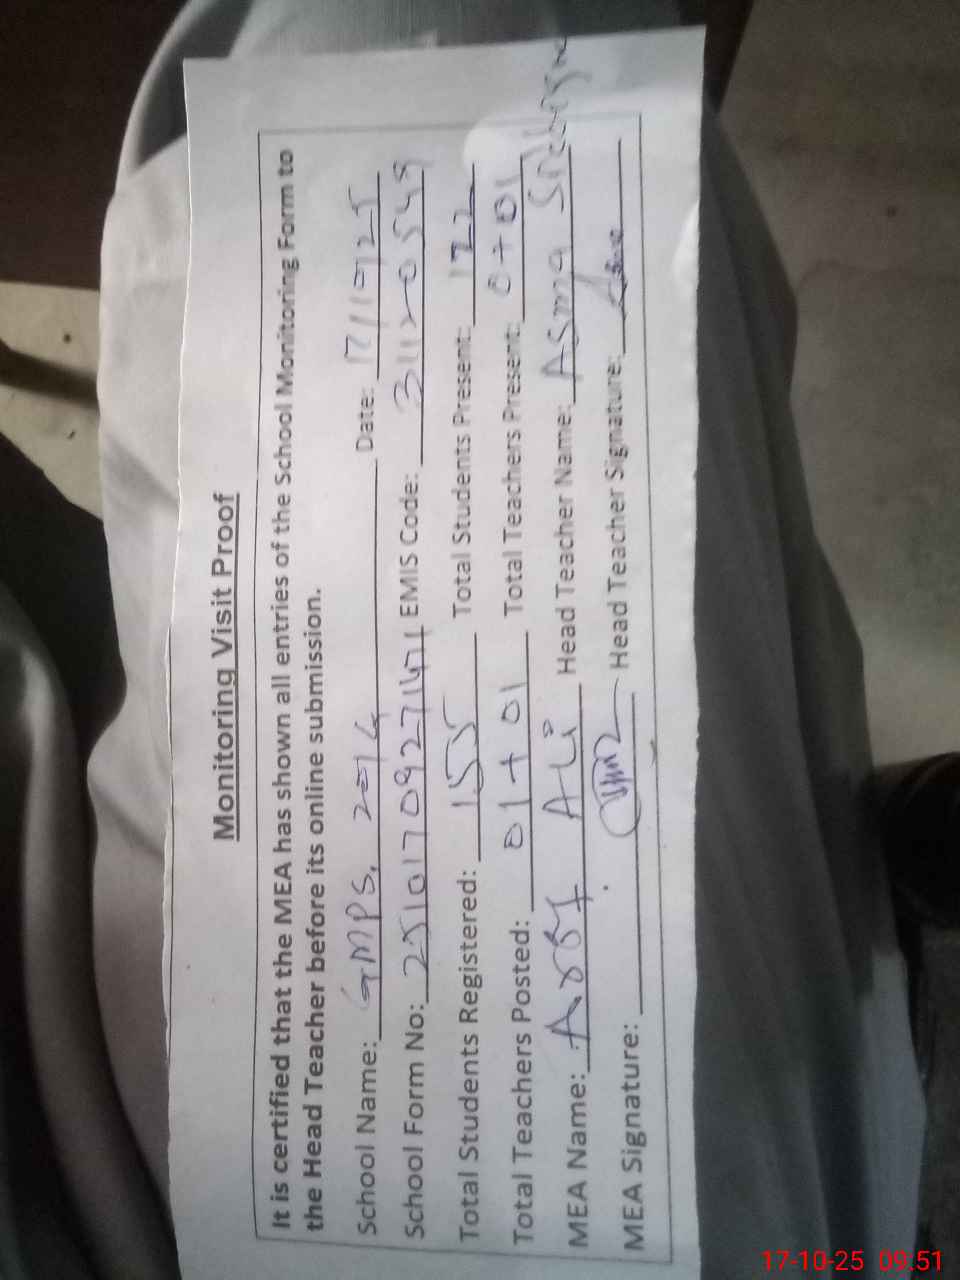 Monitoring Visit Proof
It is certified that the MEA has shown all entries of the School Monitoring Form to
the Head Teacher before its online submission.
School Name: GMPS, Date:
School Form No: EMIS Code: 31120549
Total Students Registered: 155 Total Students Present: 122
Total Teachers Posted: 01+01 Total Teachers Present: 0+01
MEA Name: Ali Head Teacher Name: Asma
MEA Signature: Head Teacher Signature:
17-10-25 09.51